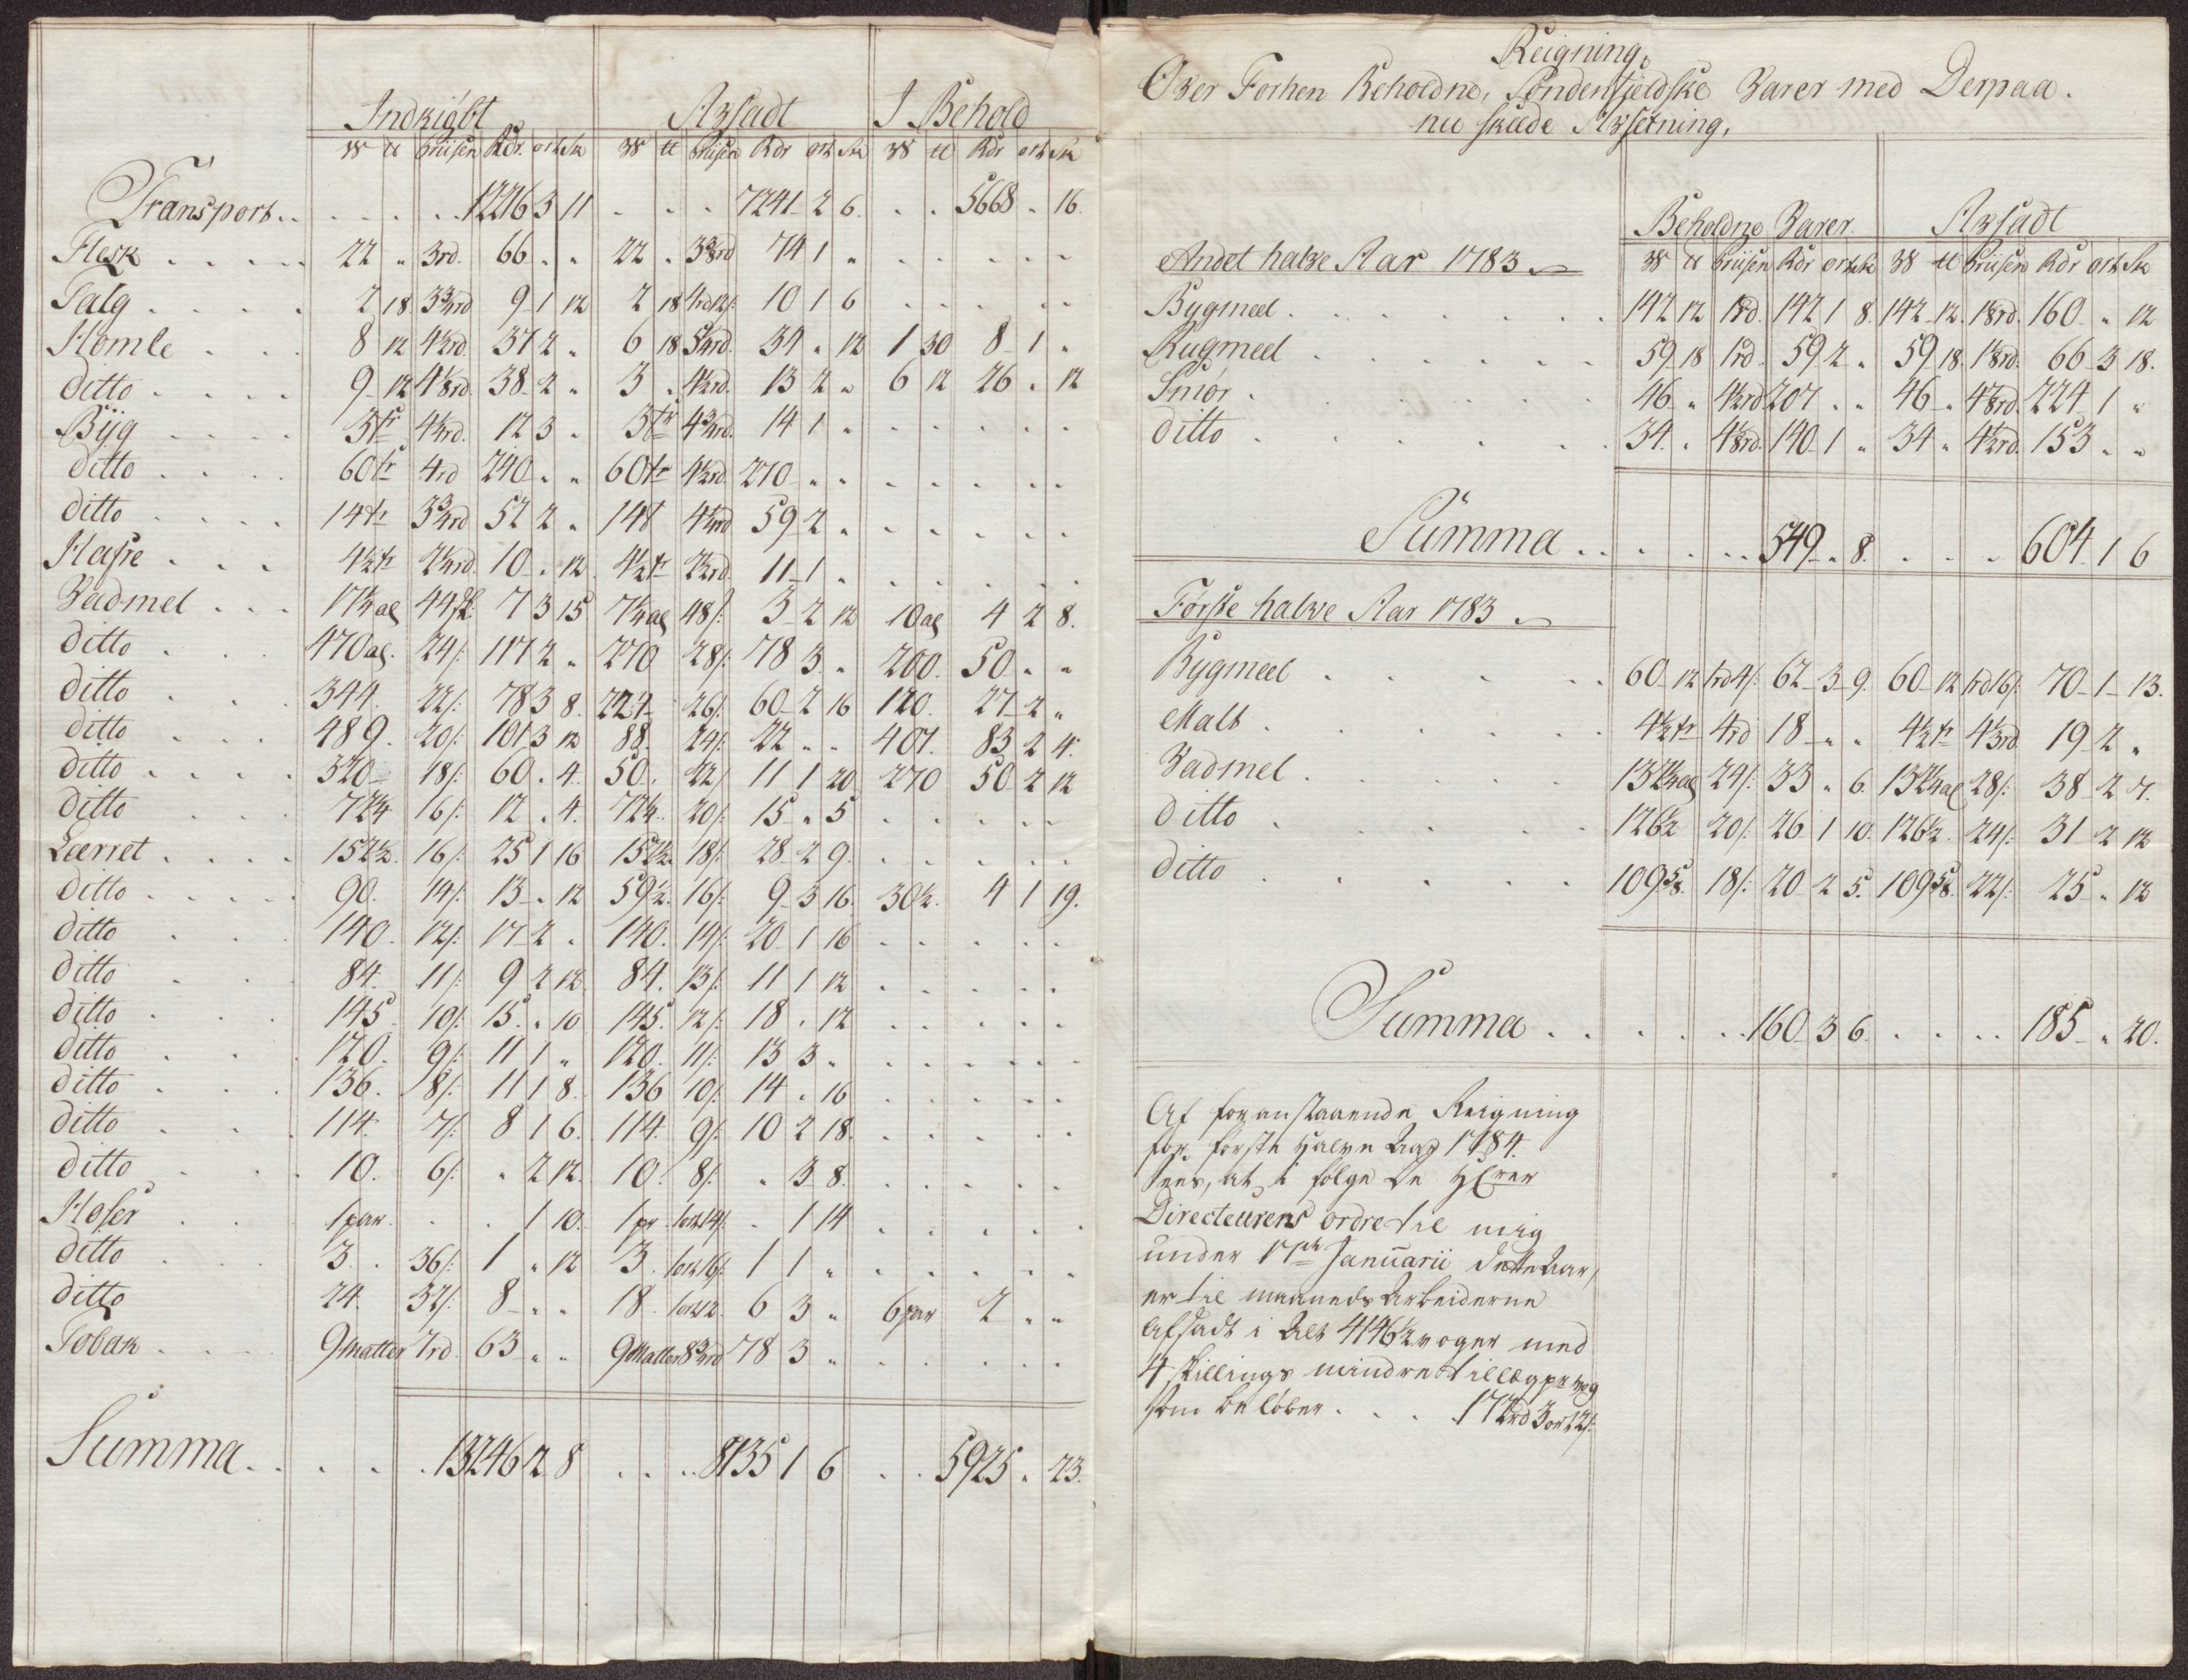 Indkiøbt Afsadt I Behold
W ℔ Priisen Rdr. ort Sk W ℔ Priisen Rdr ort Sk W ℔ Rdr ort Sk
Transport . . . . . . 12216 3 11 . . . 7241 2 6 . . 5668 „ 16.
Flesk . . . . 22 „ 3rd. 66 „ „ 22 „ 3 3/8rd 74 1 „ . . . . .
Talg . . . . 2 18 3 3/4rd 9 1 12 2 18 4rd12s: 10 1 6 . . . . .
Homle . . . 8 12 4 1/2rd. 37 2 „ 6 18 5 1/4rd. 34 „ 12 1 30 8 1 „
ditto . . . . 9 12 4 1/8rd. 38 2 „ 3 „ 4 1/2rd. 13 2 „ 6 12 26 „ 12
Byg . . . . 3tr 4 1/4rd. 12 3 „ 3tr 4 3/4rd. 14 1 „ . . . . .
ditto . . . . 60tr 4rd 240 „ „ 60tr 4 1/2rd. 270 „ „ . . . . .
ditto . . . . 14tr 3 3/4rd 52 2 „ 14t 4 1/4rd 59 2 „ . . . . .
Hafre . . . 4 1/2tr 2 1/4rd. 10 „ 12 4 1/2tr 2 1/2rd. 11 1 „ . . . . .
Vadmel . . . 17 1/4al 44s: 7 3 15 7 1/4al 48s: 3 2 12 10al 4 2 8.
ditto . . . 470al. 24s: 117 2 „ 270 28s: 78 3 „ 200. 50 „ „
ditto . . . 344. 22s: 78 3 8. 224 26s: 60 2 16 120. 27 2 „
ditto . . . 489. 20s: 101 3 12 88. 24s: 22 „ „ 401. 83 2 4.
ditto . . . . 320 18s: 60 „ 4. 50. 22s: 11 1 20 270 50 2 12
ditto . . . 72 1/4 16s: 12 „ 4. 72 1/4. 20s: 15 „ 5 . . . . .
Lærret . . . . 152 1/2. 16s: 25 1 16 152 1/2. 18s: 28 2 9. . . . . .
ditto . . . . . 90. 14s: 13 „ 12 59 1/2. 16s: 9 3 16. 30 1/2. 4 1 19.
ditto . . . 140. 12s: 17 2 „ 140. 14s: 20 1 16 . . . . .
ditto . . . 84. 11s: 9 2 12 84. 13s: 11 1 12 . . . . .
ditto . . . 145 10s: 15. „ 10 145. 12s: 18 „ 12 . . . . .
ditto . . . 120. 9s: 11 1 „ 120. 11s: 13 3 „ . . . . .
ditto . . . 136. 8s: 11 1 8. 136 10s: 14 „ 16 . . . . .
ditto . . . 114. 7s: 8 1 6. 114. 9s: 10 2 18. . . . . .
ditto . . . 10. 6s: „ 2 12. 10. 8s: „ 3 8. . . . . .
Hoser . . . 1par. . . 1 10. 1pr 1ort14s. „ 1 14 . . . . .
ditto . . . 3. 36s: 1 „ 12 3. 1ort16s: 1 1 „ . . . . .
ditto 24. 32s: 8 „ „ 18. 1ort12. 6 3 „ 6par 2 „ „
Tobak . . . 9Matter 7rd. 63 „ „ 9Matter 8 3/4rd 78 3 „ . . . . .
Summa . . . . . 13246 2 8 . . . 8135 1 6 . . 5925 „ 23.
Reigning,
Over Forhen Beholdne, Søndenfieldske Varer med Derpaa.
nu skeede Afsetning,
Beholdne Varer. Afsadt
Andet halve Aar 1783 W ℔ Priisen Rdr ort Sk W ℔ Priisen Rdr ort Sk
Bygmeel . . . . . . . 142 12 1rd. 142 1 8. 142 12. 1 1/8rd. 160 „ 12
Rugmeel . . . . . . 59 18 1rd. 59 2 „ 59 18. 1 1/8rd. 66 3 18.
Smør . . . . . . 46 „ 4 1/2rd 207 „ „ 46 „ 4 7/8rd. 224 1 „
ditto . . . . . . . 34. „ 4 1/8rd. 140 1 „ 34 „ 4 1/2rd. 153 „ „
Summa . . . . . . 549 „ 8. . . . 604 1 6
Første halve Aar 1783
Bygmeel . . . . . 60 12 1rd4s: 62 3 9. 60 12 1rd16s: 70 1 13.
Malt . . . . . 4 1/2tr 4rd 18 „ „ 4 1/2tr 4 1/3rd. 19 2 „
Vadmel . . . . 132 1/4al 24s: 33 „ 6. 132 1/4al 28s: 38 2 7.
ditto . . . . . 126 1/2 20s: 26 1 10. 126 1/2. 24s: 31 2 12
ditto . . . . . 109 5/8. 18s: 20 2 5. 109 5/8. 22s: 25 „ 12
Summa . . . . . . 160 3 6. . . . . 185 „ 20.
Af foranstaaende Reigning
for første halve Aar 1784.
sees, at i følge De Herrer
Directeurens ordre til mig
under 17de Januarii dette Aar,
er til maaneds Arbeiderne
Afsadt i Alt 4146 1/2 voger med
4 skillings mindre tillæg pr vog
som beløber . . . 172rd 3ort 12s: